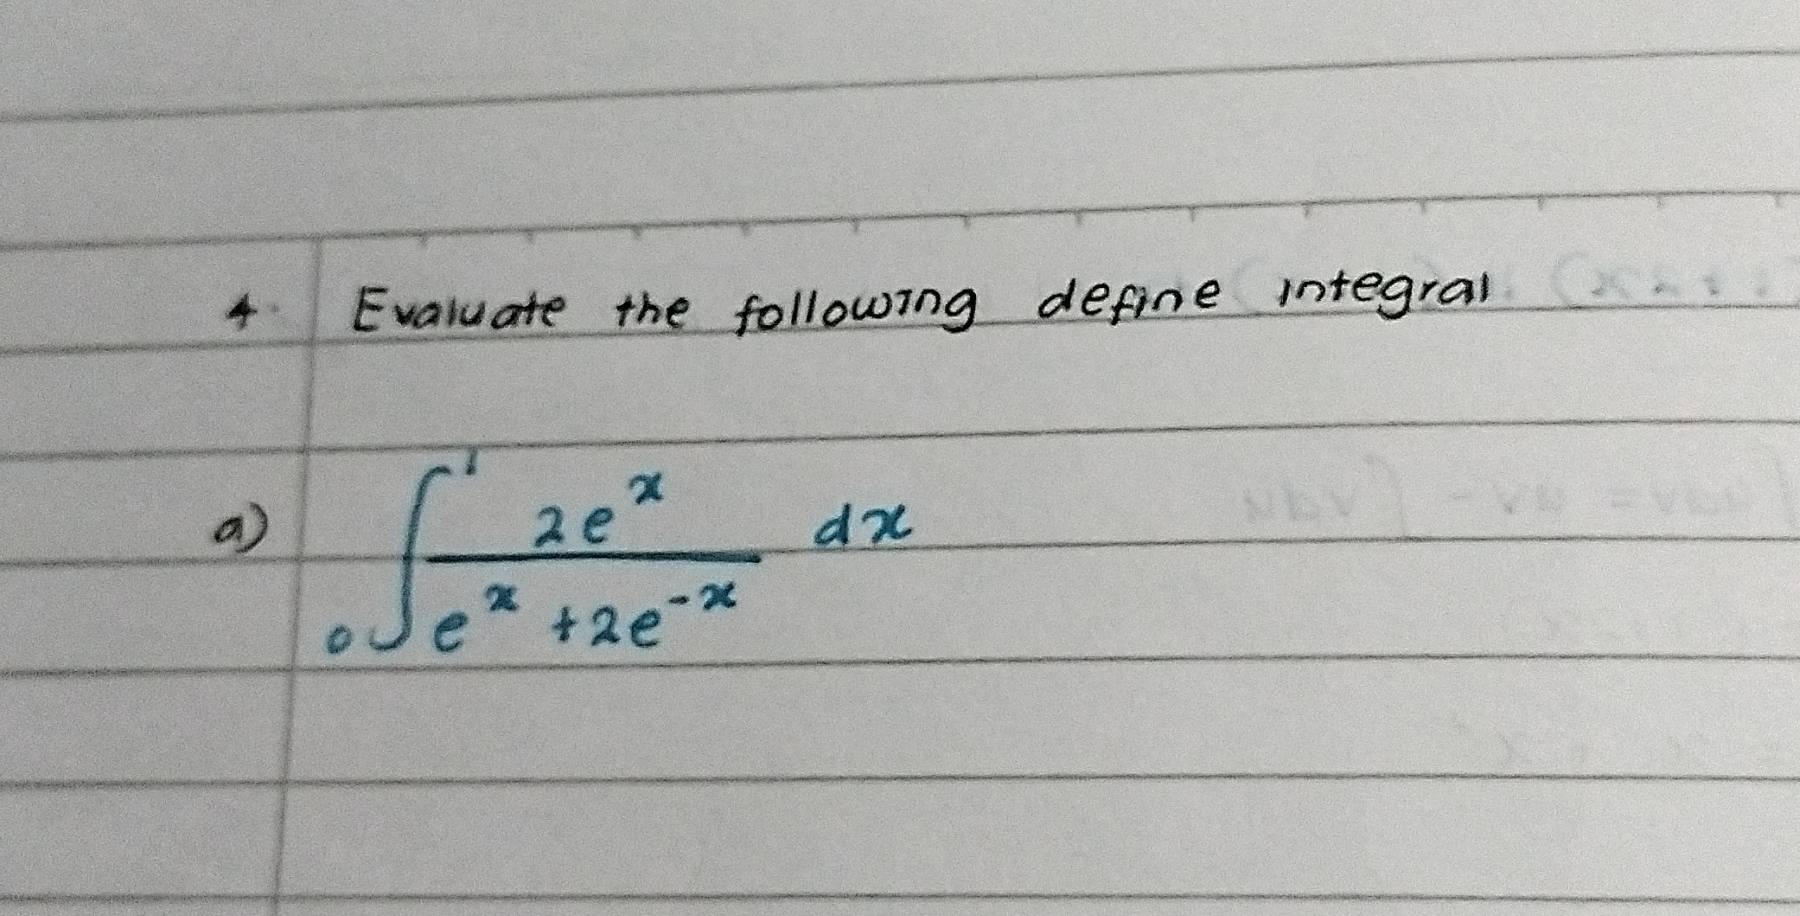 4. Evaluate the following define integral
a) ∫₀¹ 2eˣ / (eˣ + 2e⁻ˣ) dx